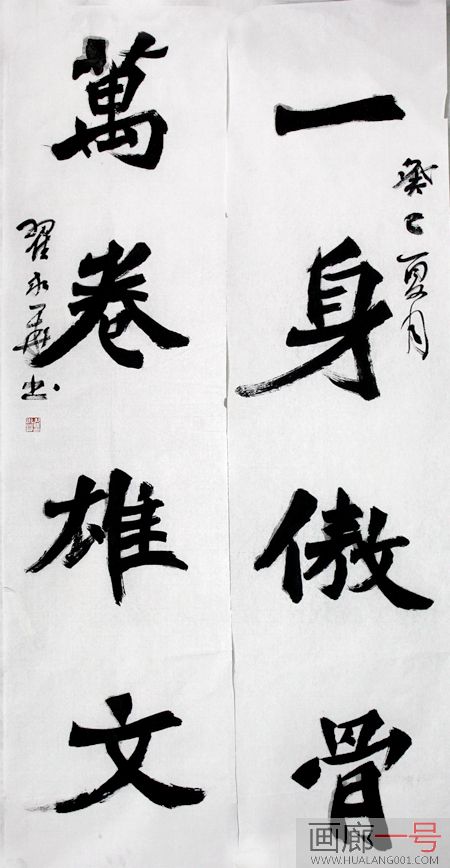 癸巳夏月
一身傲骨
萬卷雄文
翟永華书
画廊一号
WWW.HUALANG001.COM